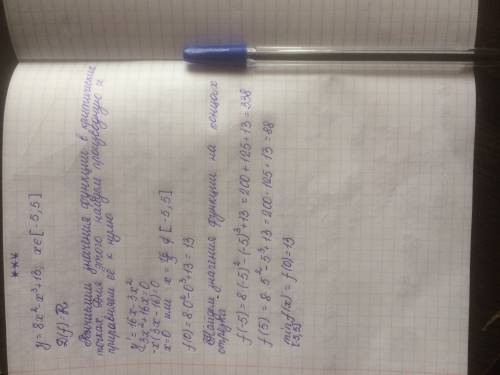 ***
y = 8x² - x³ + 13; x∈[-5,5]
D(f) = R.
Вычислим значения функции в критических
точках. Для этого найдем производную и
приравняем её к нулю
y' = 16x - 3x²
-3x² + 16x = 0
-x(3x - 16) = 0
x = 0 или x = 16/3 ∉ [-5,5]
f(0) = 8·0² - 0³ + 13 = 13
Найдем значения функции на концах
отрезка
f(-5) = 8·(-5)² - (-5)³ + 13 = 200 + 125 + 13 = 338
f(5) = 8·5² - 5³ + 13 = 200 - 125 + 13 = 88
min f(x) = f(0) = 13
[-5,5]